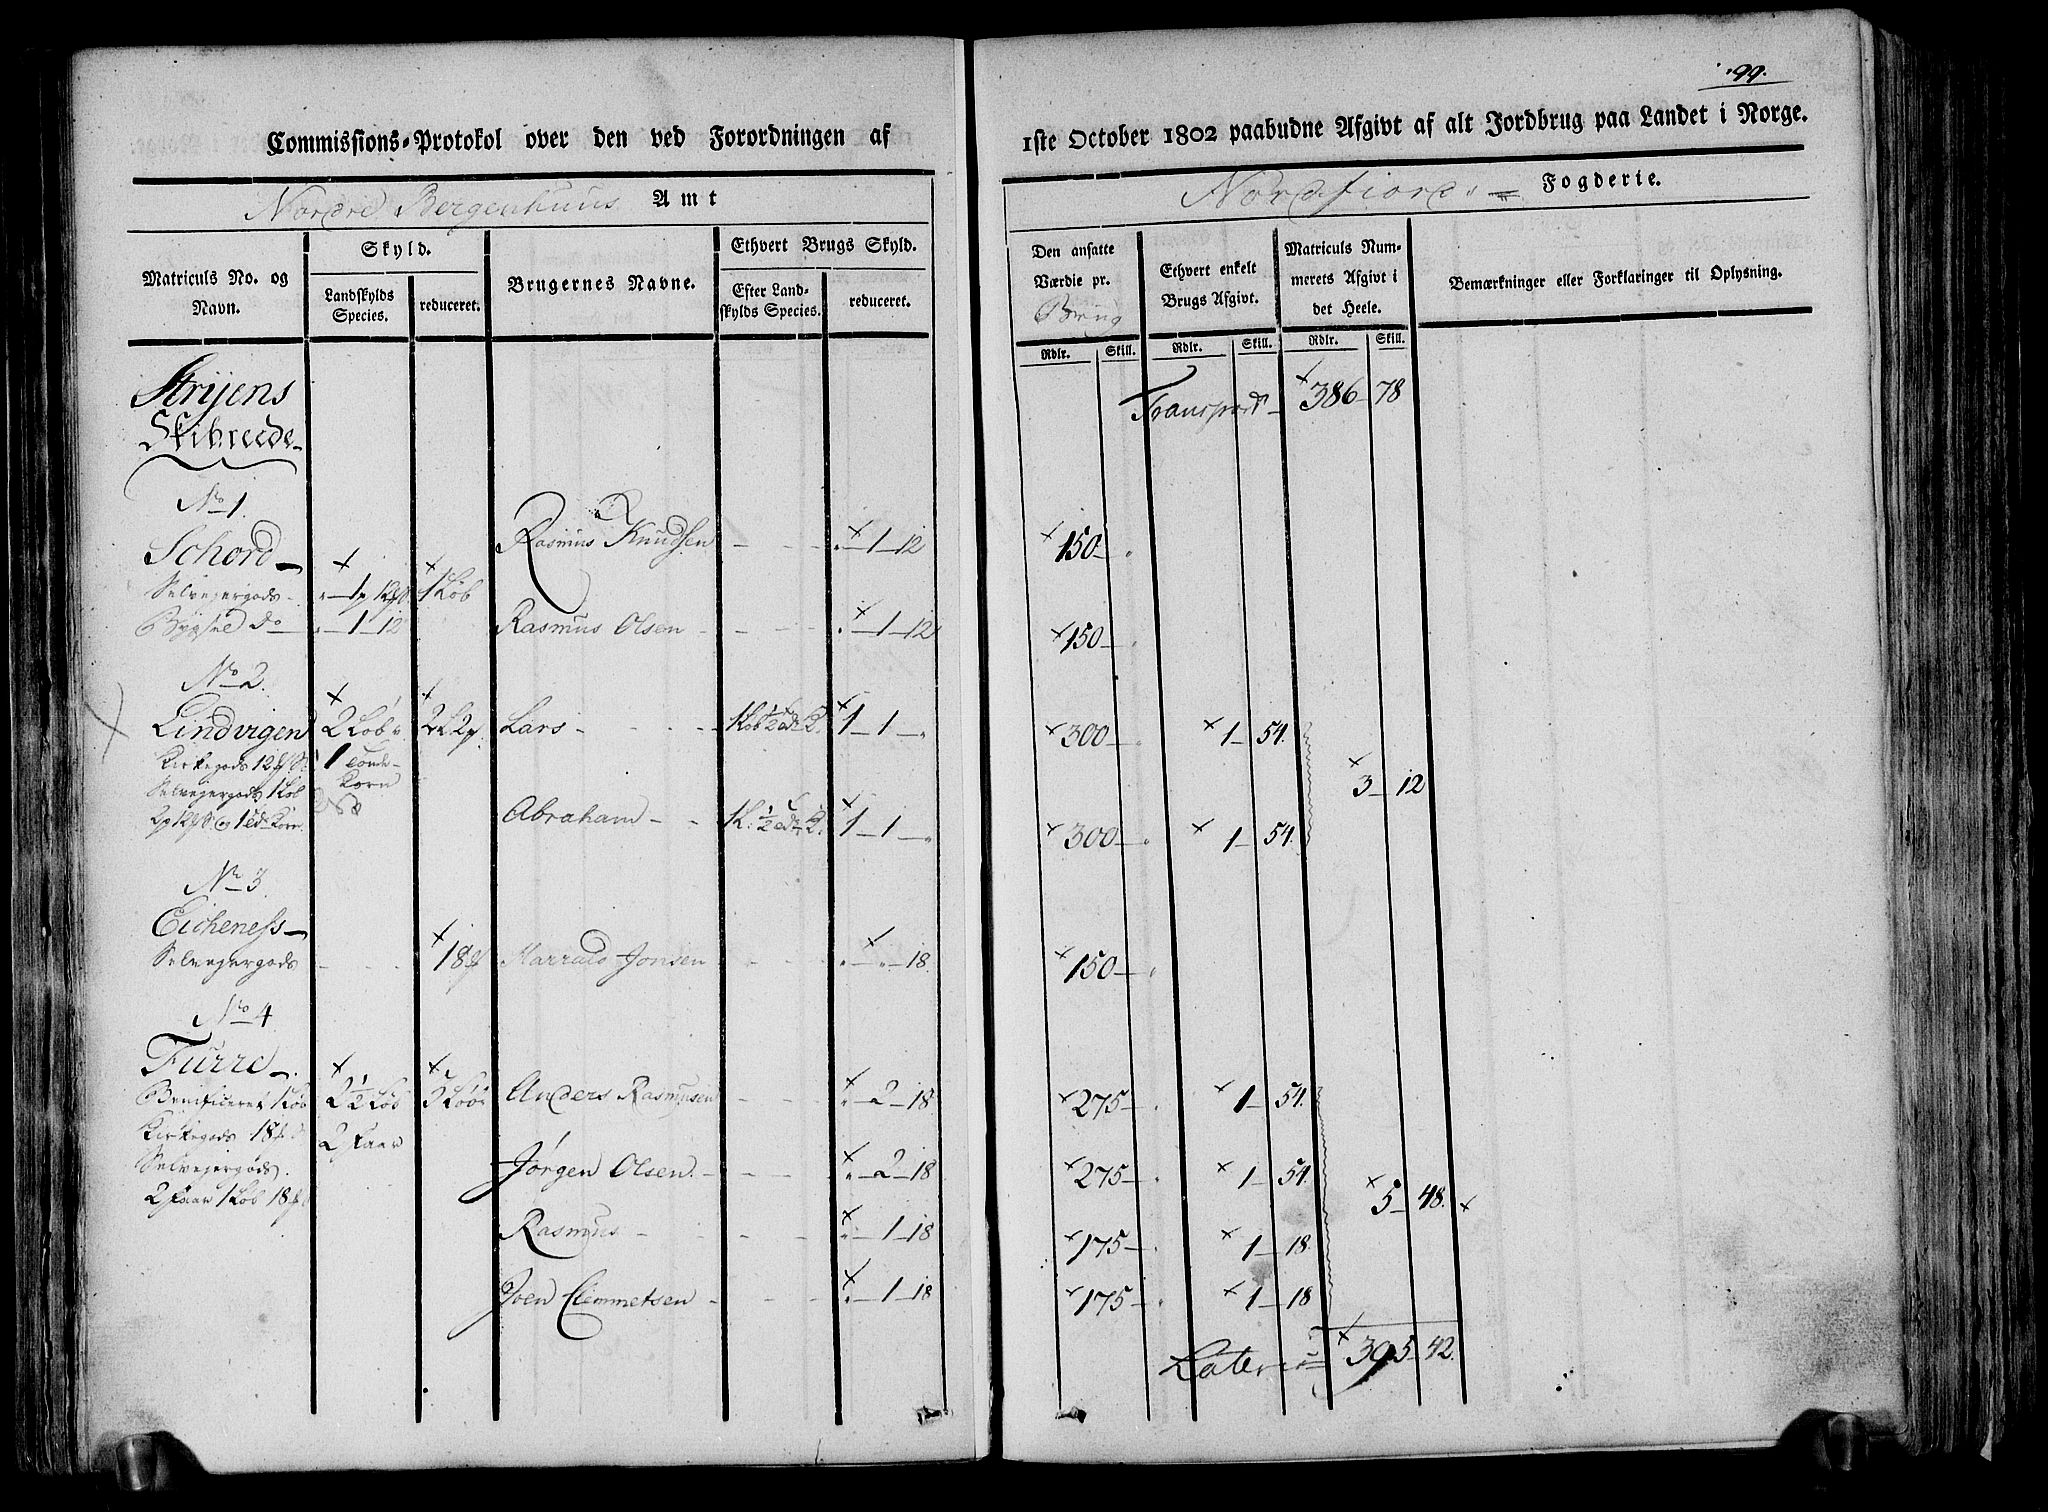 99.
Commissions-Protokol over den ved Forordningen af 1ste October 1802 paabudne Afgivt af alt Jordbrug paa Landet i Norge.
Nordre Bergenhuus Amt
Nordfiords Fogderie.
Matriculs No. og Navn.
Skyld.
Landskylds Species.
reduceret.
Brugernes Navne.
Ethvert Brugs Skyld.
Efter Landskylds Species.
reduceret.
Den ansatte Værdie pr. Brug
Ethvert enkelt Brugs Afgivt.
Matriculs Nummerets Afgivt i det Heele.
Bemærkninger eller Forklaringer til Oplysning.
Rdlr. Skill. Rdlr. Skill. Rdlr. Skill.
Strijens
Skibreede
Transport 386 78
No 1.
Schord
Rasmus Knudsen 1 12 150
Selvejergods 1 p 12 1 Løb
Bygsel do 1 12 Rasmus Olsen 1 12 150
No 2.
Lindvigen 2 Løb 2 L 2 p. Lars 1 Løb 1/2 1 1 300 1 54.
Kirkegods 12 1 Tønde Korn
3 12
Selvejergods 1 Løb
Abraham 1 L: 1/2 1 1 300 1 54.
No 3
Eicheness
Selvejergods 18 Harrald Jonsen 18. 150
No 4
Furre
Benificeret 1 Løb 2 1/2 Løb 3 Løb Anders Rasmusen 2 18 275 1 54.
Kirkegods 18 2 Faar
Selvejergods. Jørgen Olsen. 2 18 275 1 54.
2 Faar 1 Løb 18
5 48.
Rasmus 1 18 175 1 18.
Joen Clemmetsen 1 18 175 1 18
Lateris 395 42.